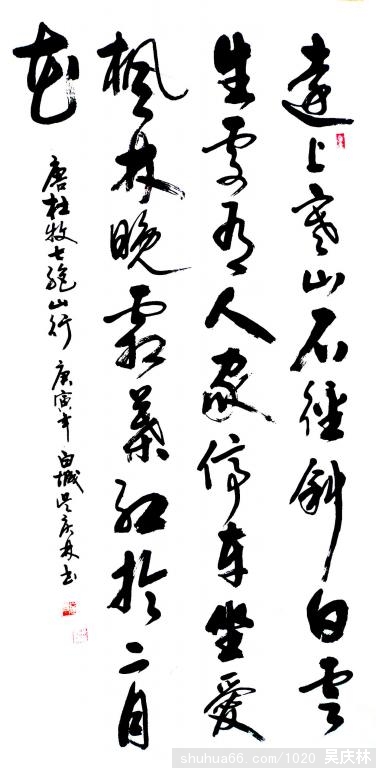 遠上寒山石徑斜白雲
生處有人家停車坐愛
楓林晚霜葉紅於二月
花
唐杜牧七絶山行 庚寅年 白城吳慶林书
shuhua66.com/1020 吴庆林